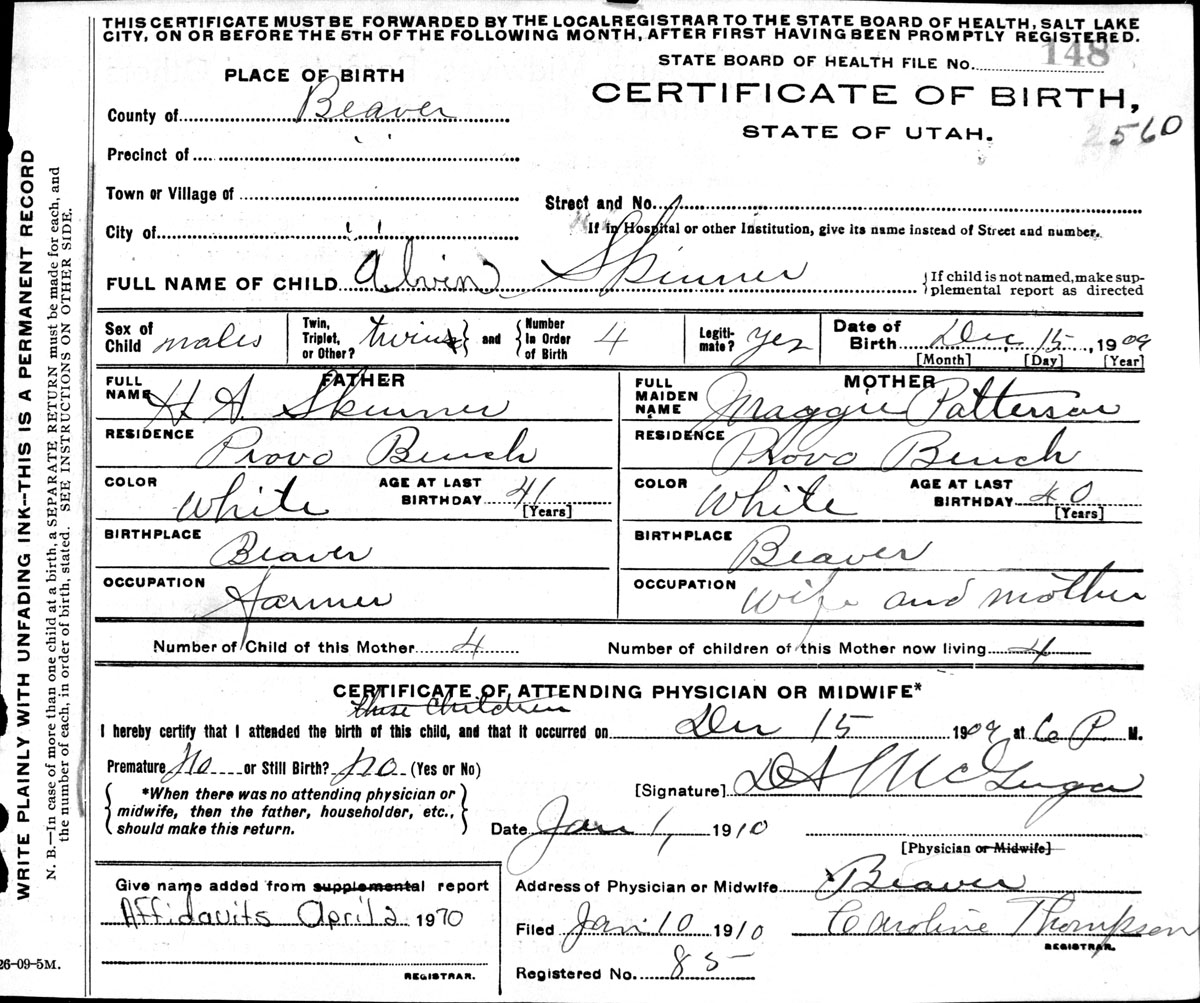 THIS CERTIFICATE MUST BE FORWARDED BY THE LOCAL REGISTRAR TO THE STATE BOARD OF HEALTH, SALT LAKE
CITY, ON OR BEFORE THE 5TH OF THE FOLLOWING MONTH, AFTER FIRST HAVING BEEN PROMPTLY REGISTERED.
STATE BOARD OF HEALTH FILE No. 148
PLACE OF BIRTH
CERTIFICATE OF BIRTH,
STATE OF UTAH.
560
County of Beaver
Precinct of " "
Town or Village of
Street and No.
City of " "
If in Hospital or other Institution, give its name instead of Street and number.
FULL NAME OF CHILD Alvin Skinner
{If child is not named, make sup-
plemental report as directed
Sex of Child males
Twin, Triplet, or Other? twins
and
Number In Order of Birth 4
Legiti-mate? yes
Date of Birth Dec 15, 1909
[Month] [Day] [Year]
FATHER
MOTHER
FULL NAME H. A. Skinner
FULL MAIDEN NAME Maggie Patterson
RESIDENCE Provo Bench
RESIDENCE Provo Bench
COLOR White AGE AT LAST BIRTHDAY 41 [Years]
COLOR White AGE AT LAST BIRTHDAY 40 [Years]
BIRTHPLACE Beaver
BIRTHPLACE Beaver
OCCUPATION Farmer
OCCUPATION wife and mother
Number of Child of this Mother 4
Number of children of this Mother now living 4
CERTIFICATE OF ATTENDING PHYSICIAN OR MIDWIFE*
these Children
I hereby certify that I attended the birth of this child, and that it occurred on Dec 15 1909 at 6 P. M.
Premature No or Still Birth? No (Yes or No)
*When there was no attending physician or
midwife, then the father, householder, etc.,
should make this return.
[Signature]
Date Jan 1, 1910
[Physician or Midwife]
Give name added from supplemental report
Affidavits April 2 1970
REGISTRAR.
Address of Physician or Midwife Beaver
Filed Jan 10 1910 Caroline Thompson
REGISTRAR.
Registered No. 85
WRITE PLAINLY WITH UNFADING INK--THIS IS A PERMANENT RECORD
N. B.—In case of more than one child at a birth, a SEPARATE RETURN must be made for each, and
the number of each, in order of birth, stated. SEE INSTRUCTIONS ON OTHER SIDE.
26-09-5M.